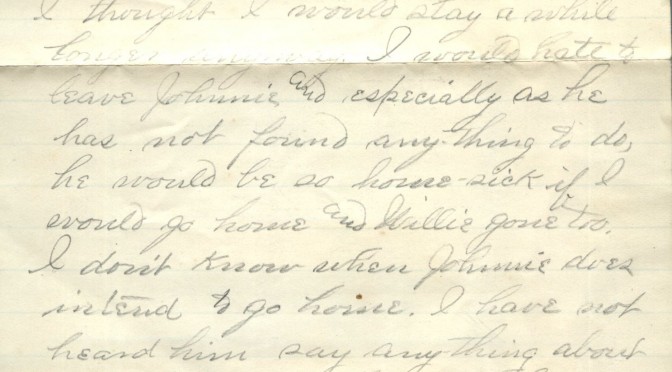 I thought I would stay a while
longer anyway. I would hate to
leave Johnnie and especially as he
has not found any-thing to do,
he would be so home-sick if I
would go home and Willie gone too.
I don't know when Johnnie does
intend to go home. I have not
heard him say anything about